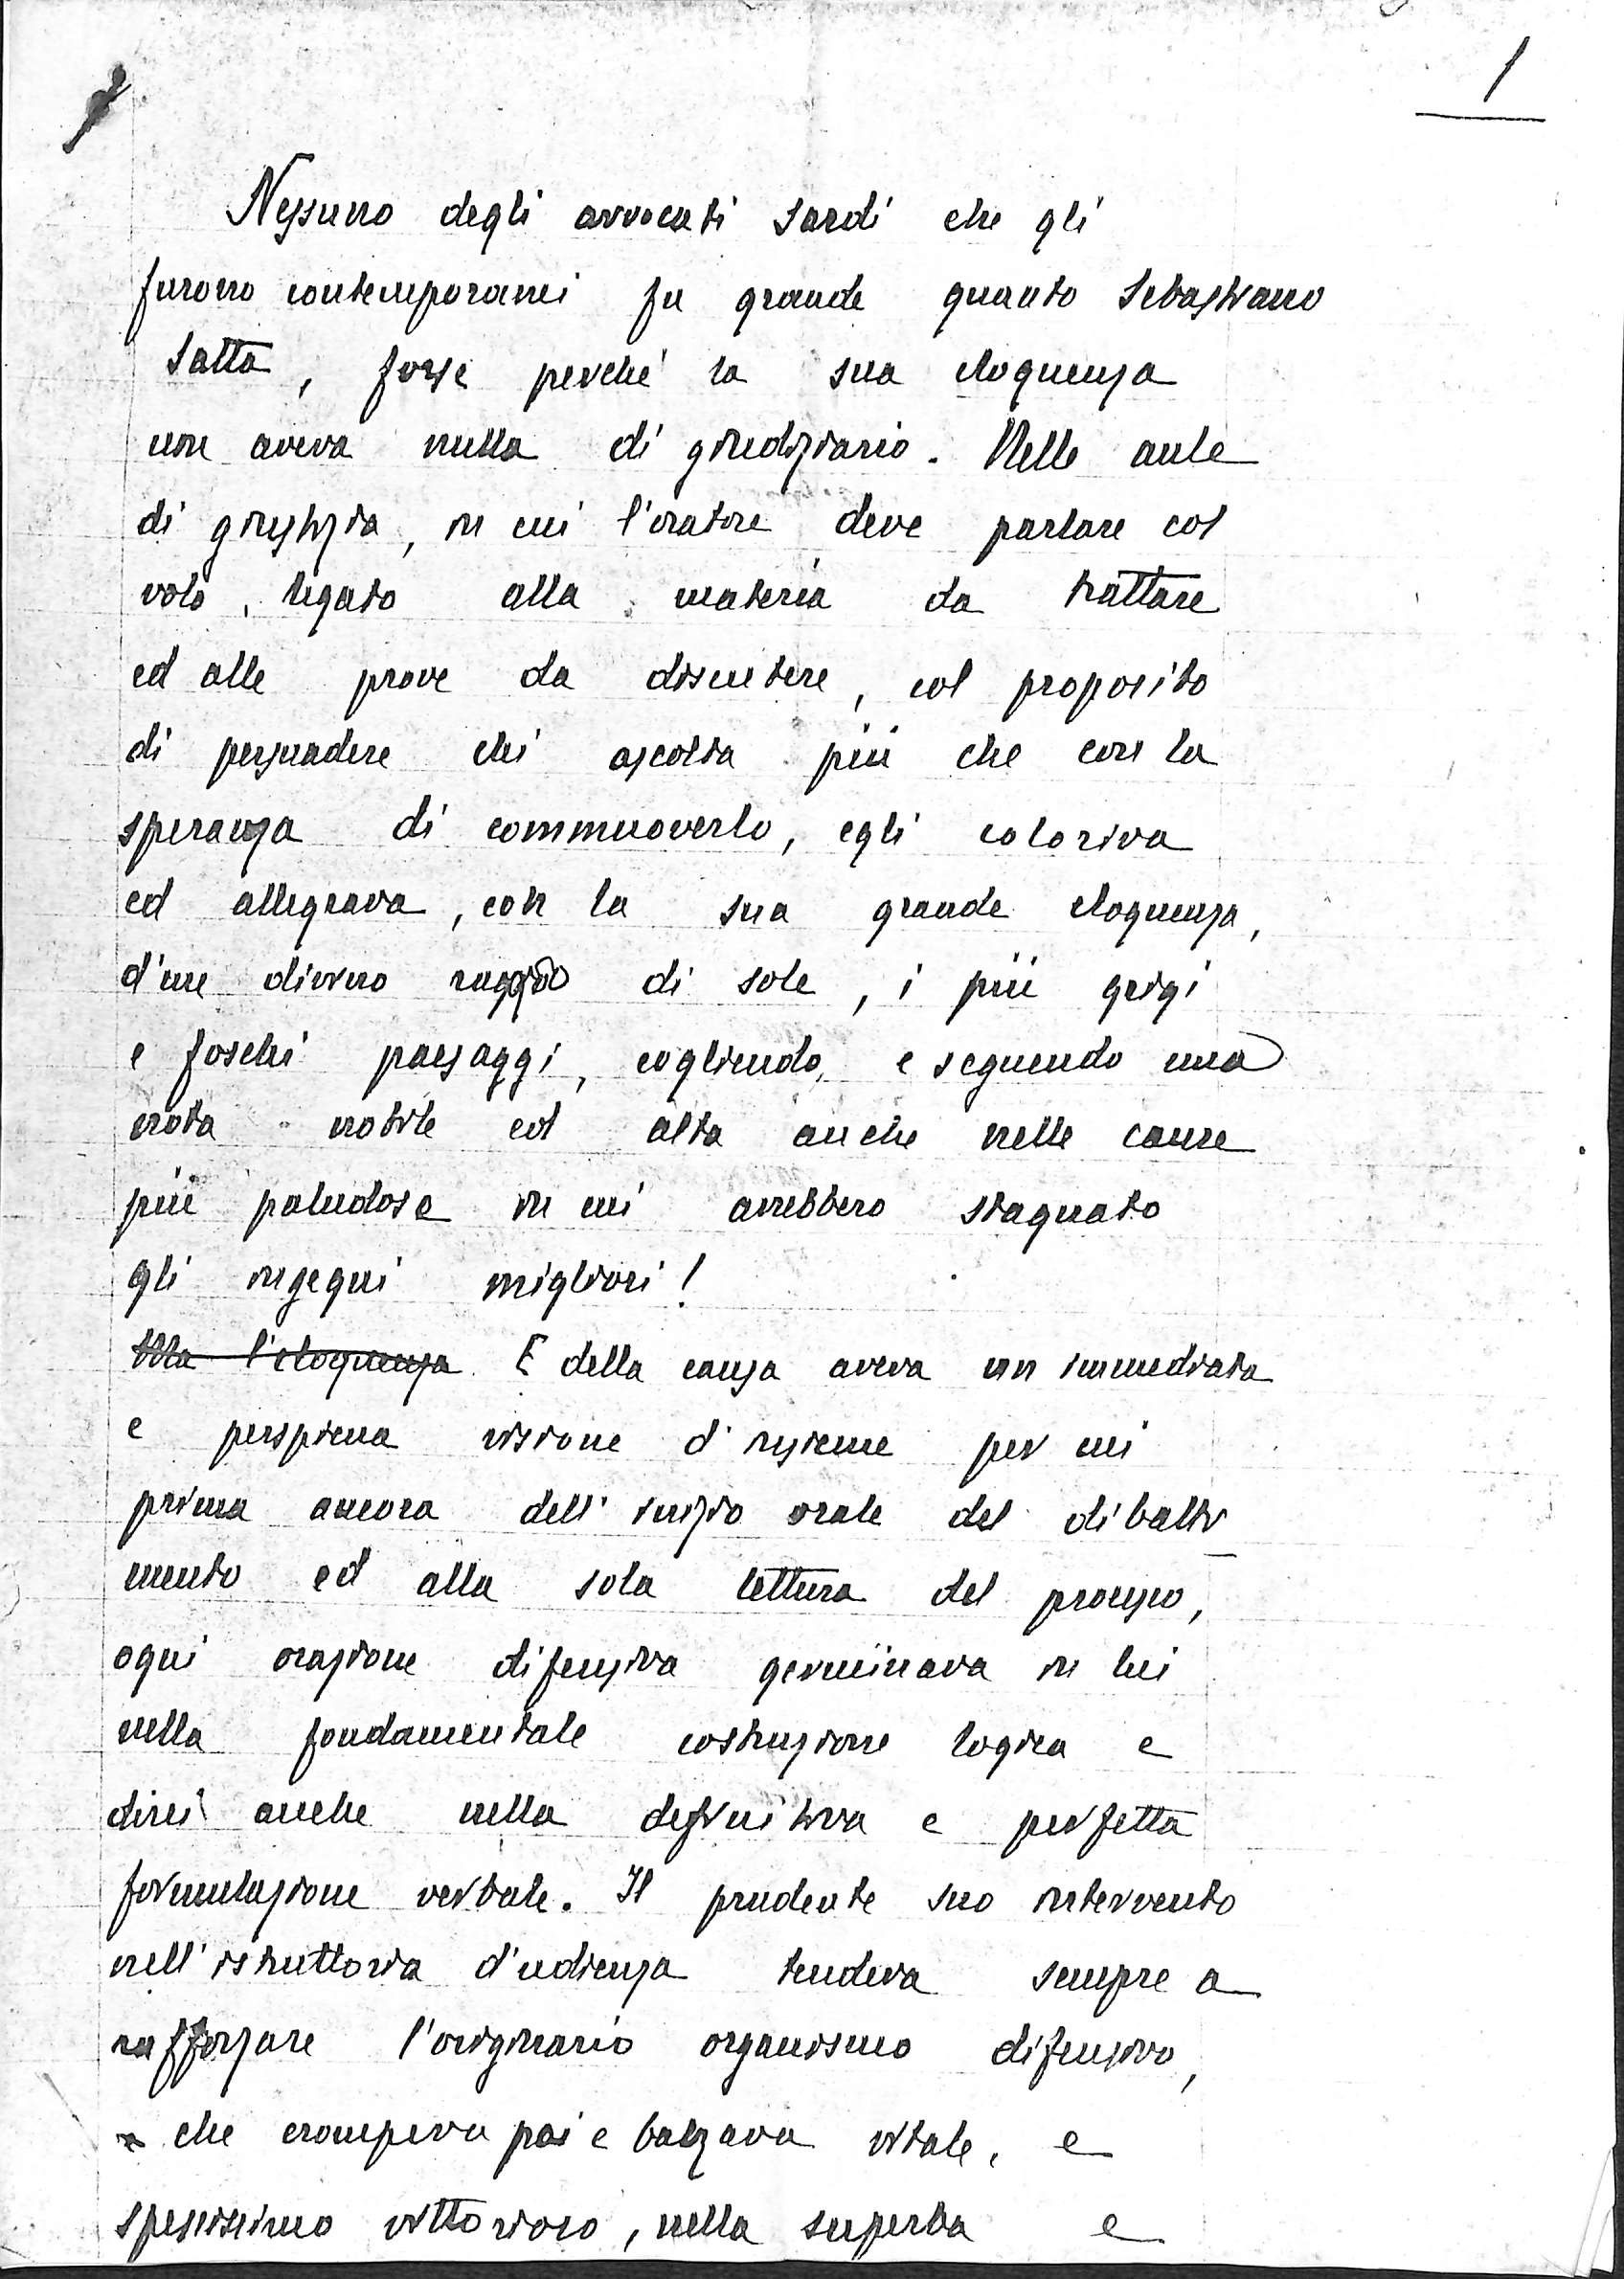 1
Nessuno degli avvocati sardi che gli
furono contemporanei fu grande quanto Sebastiano
Satta, forse perché la sua eloquenza
non aveva nulla di giudiziario. Nelle aule
di giustizia, in cui l'oratore deve parlare col
volo legato alla materia da trattare
ed alle prove da discutere, col proposito
di persuadere chi ascolta più che con la
speranza di commuoverlo, egli coloriva
ed allegrava, con la sua grande eloquenza,
d'un divino raggio di sole, i più grigi
e foschi paesaggi, cogliendo, e seguendo una
nota nobile ed alta anche nelle cause
più paludose in cui avrebbero stagnato
gli ingegni migliori!
Ma l'eloquenza E della causa aveva un immediata
e perspicua visione d'insieme per cui
prima ancora dell'inizio orale del dibatti
mento ed alla sola lettura del processo,
ogni orazione difensiva germinava in lui
nella fondamentale costruzione logica e
direi anche nella definitiva e perfetta
formulazione verbale. Il prudente suo intervento
nell'istruttoria d'udienza tendeva sempre a
rafforzare l'originario organismo difensivo,
che erompeva poi e balzava vitale, e
spessissimo vittorioso, nella superba e